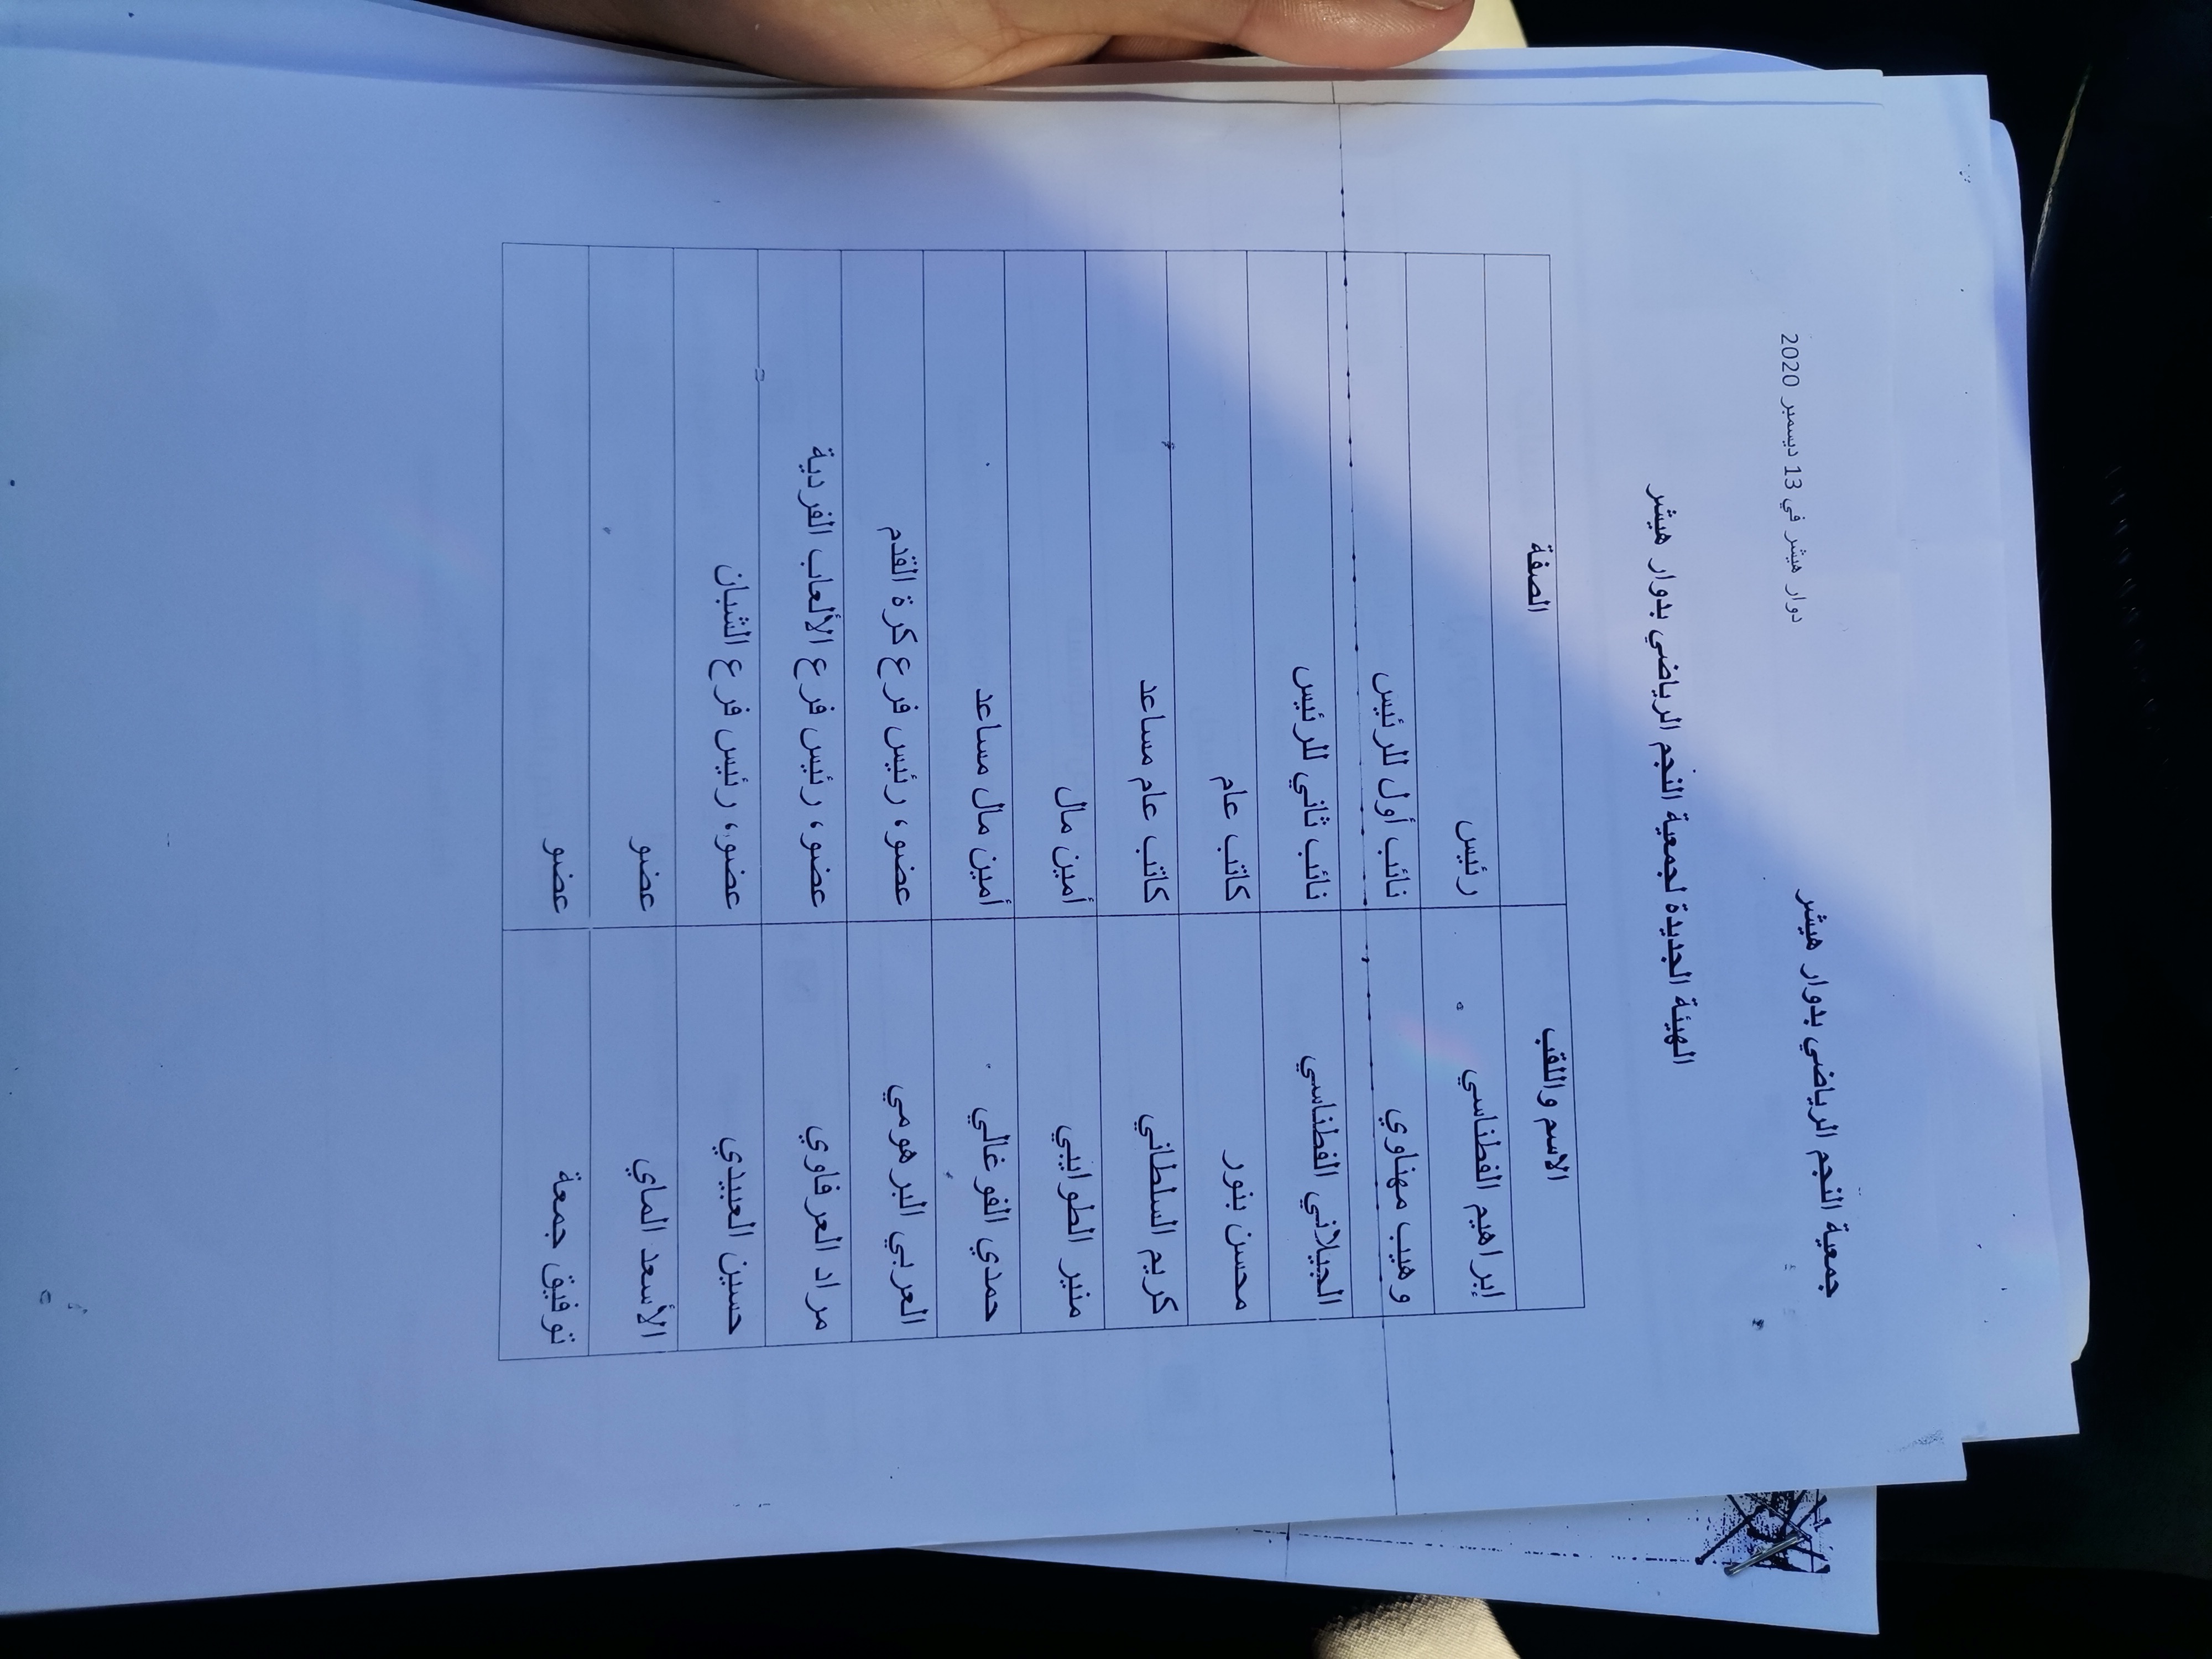 جمعية النجم الرياضي بدوار هيشر
دوار هيشر في 13 ديسمبر 2020
الهيئة الجديدة لجمعية النجم الرياضي بدوار هيشر
الاسم واللقب الصفة
إبراهيم الفطناسي رئيس
وهيب مهناوي نائب أول للرئيس
الجيلاني الفطناسي نائب ثاني للرئيس
محسن بنور كاتب عام
كريم السلطاني كاتب عام مساعد
منير الطوايبي أمين مال
حمدي الفوغالي أمين مال مساعد
العربي البرهومي عضو، رئيس فرع كرة القدم
مراد العرفاوي عضو، رئيس فرع الألعاب الفردية
حسين العبيدي عضو، رئيس فرع الشبان
الأسعد الماي عضو
توفيق جمعة عضو